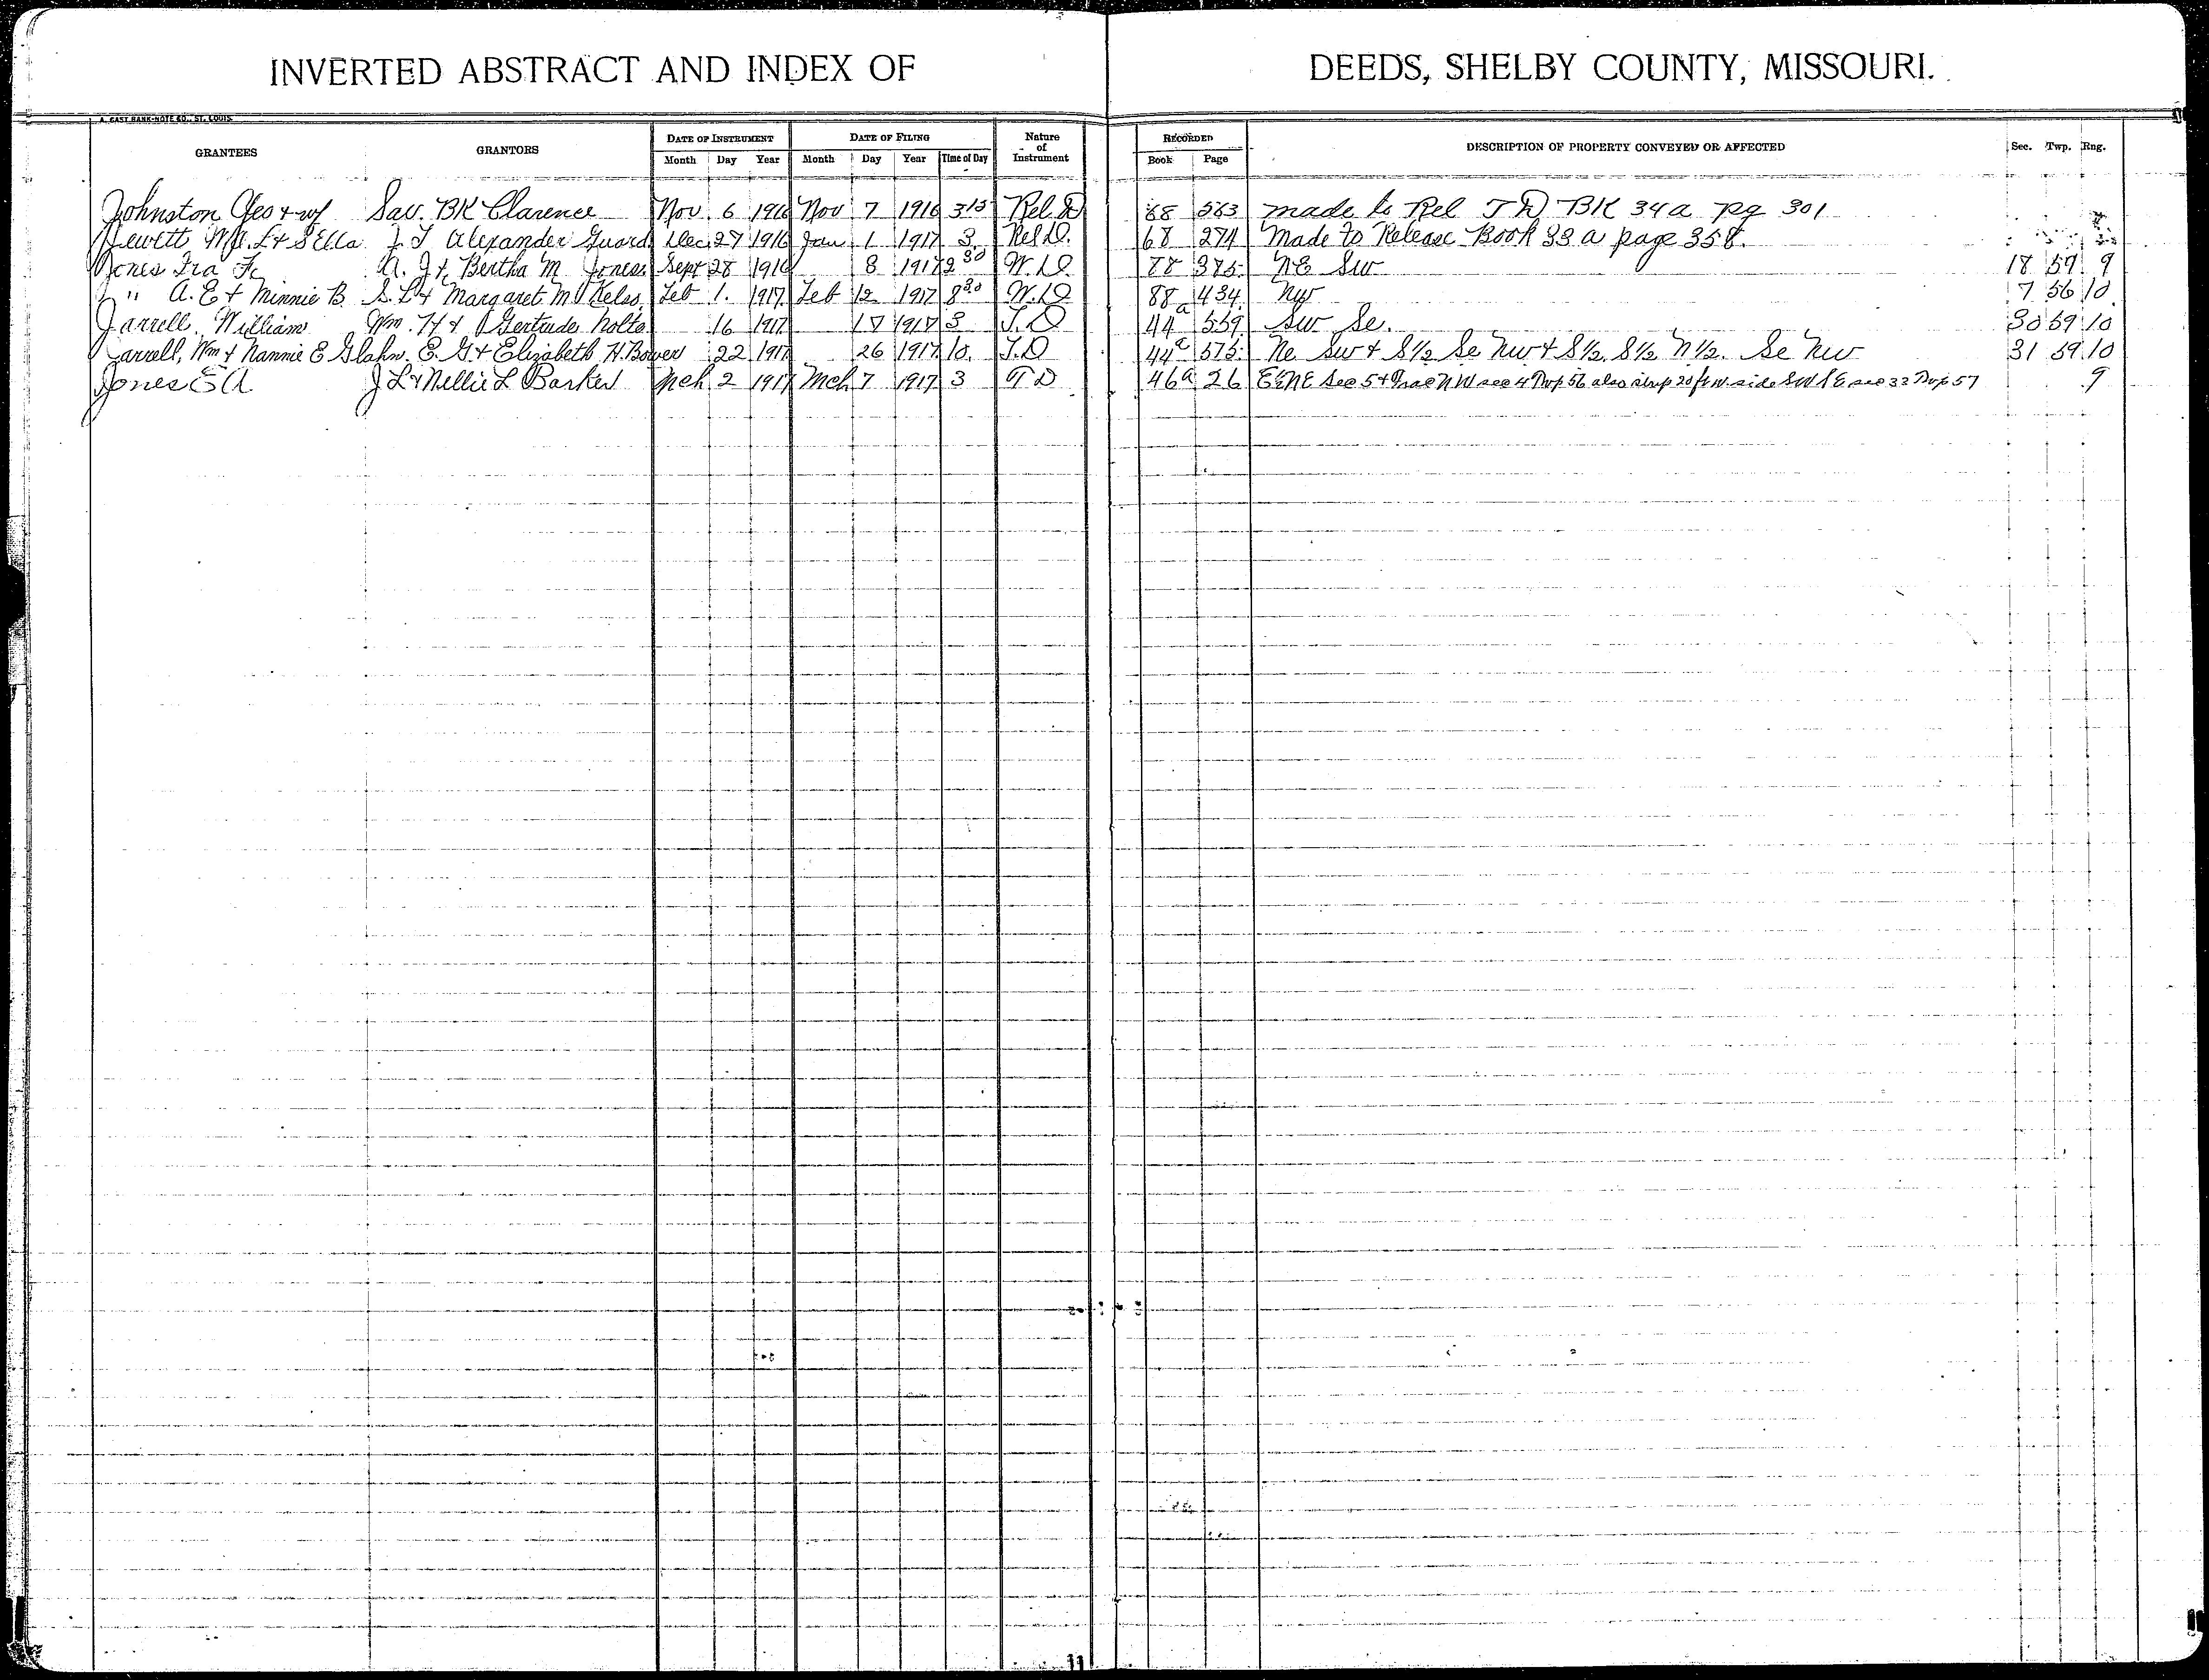 INVERTED ABSTRACT AND INDEX OF DEEDS, SHELBY COUNTY, MISSOURI.
A. GAST BANK-NOTE CO., ST. LOUIS
GRANTEES GRANTORS DATE OF INSTRUMENT Month Day Year DATE OF FILING Month Day Year Time of Day Nature of Instrument RECORDED Book Page DESCRIPTION OF PROPERTY CONVEYED OR AFFECTED Sec. Twp. Rng.
Johnston Geo & wf Sav. BK Clarence Nov. 6 1916 Nov 7 1916 3 15 Rel D 68 563 made to Rel T D BK 34a pg 301
Jewett Wm. L & S Ella J. T Alexander Guard Dec 27 1916 Jan 1 1917 3 Rel D. 68 274 Made to Release Book 33 a page 358.
Jones Ira F. A. J & Bertha M Jones Sept 28 1916 8 1917 2 30 W. D. 88 375 NE SW 18 57 9
" A. E & Minnie B. S. L & Margaret M Kelso Feb 1. 1917 Feb 12 1917 8 30 W. D 88 434 NW 7 56 10
Jarrell William Wm. H & Gertrude Nolte 16 1917 17 1917 3 T. D 44 a 559 Sw Se. 30 59 10
Jarrell, Wm & Nannie E Glahn. E. G. & Elizabeth H. Bower 22 1917 26 1917 10. T. D 44 a 575 Ne Sw & S 1/2 Se Nw & S 1/2. S 1/2 N 1/2. Se Nw 31 59 10
Jones E A J L & Nellie L Barker Mch 2 1917 Mch 7 1917 3 T D 46 a 26 NE Sec 5 & Frac N W sec 4 Twp 56 also strip 20 ft W. side SW sec 33 Twp 57 9